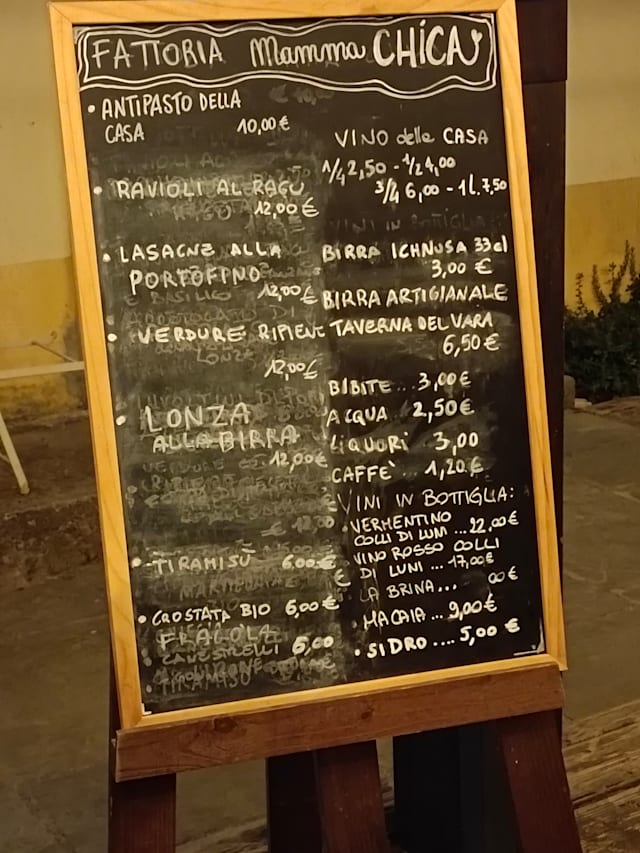 FATTORIA Mamma CHICA
• ANTIPASTO DELLA
CASA 10,00 €
• RAVIOLI AL RAGU
12,00 €
• LASAGNE ALLA
PORTOFINO
12,00 €
• VERDURE RIPIENE
12,00 €
• LONZA
ALLA BIRRA
12,00 €
• TIRAMISÙ 6,00 €
• CROSTATA BIO 6,00 €
FRAGOLA
CANESTRELLI 6,00
VINO della CASA
1/4 2,50 - 1/2 4,00
3/4 6,00 - 1 l. 7,50
BIRRA ICHNUSA 33cl
3,00 €
BIRRA ARTIGIANALE
TAVERNA DEL VARA
6,50 €
BIBITE ... 3,00 €
ACQUA .. 2,50 €
LIQUORI . 3,00
CAFFE' ... 1,20 €
VINI IN BOTTIGLIA:
• VERMENTINO
COLLI DI LUNI ... 22,00 €
• VINO ROSSO COLLI
DI LUNI ... 17,00 €
• LA BRINA ... 00 €
• MACAIA ... 9,00 €
• SIDRO .... 5,00 €